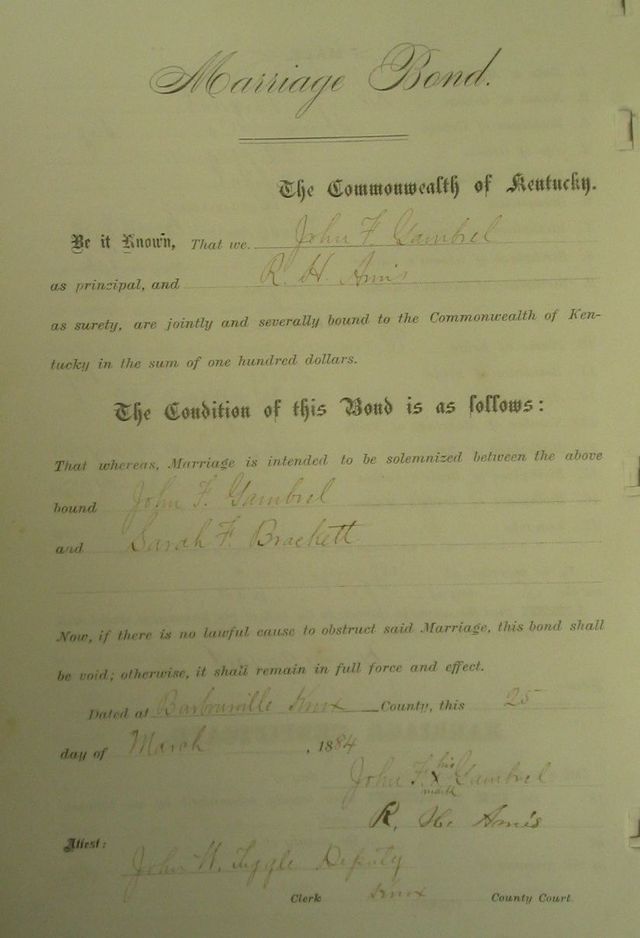 Marriage Bond.
The Commonwealth of Kentucky.
Be it Known, That we. John F. Gambrel
as principal, and R. H. Amis
as surety, are jointly and severally bound to the Commonwealth of Ken-
tucky in the sum of one hundred dollars.
The Condition of this Bond is as follows:
That whereas, Marriage is intended to be solemnized between the above
bound John F. Gambrel
and Sarah F. Brackett
Now, if there is no lawful cause to obstruct said Marriage, this bond shall
be void; otherwise, it shall remain in full force and effect.
Dated at Barbourville Knox County, this 25
day of March, 1884
John F. his x mark Gambrel
R. H. Amis
Attest:
John W. Deputy
Clerk Knox County Court